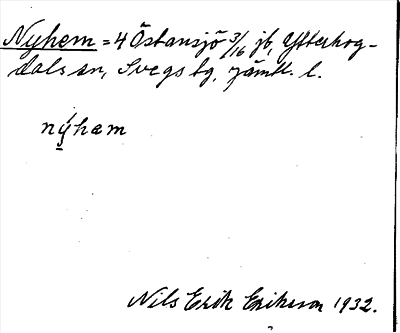 Nyhem = 4 Östansjö 3/16 jb, Ytterhog-
dals sn, Svegs tg, Jämtl. l.
nýhem
Nils Erik Eriksson 1932.